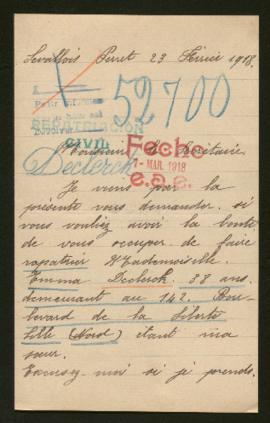 Levallois Perret 23 Février 1918.
52700
RAPATRIATION
CIVIL
Monsieur le Secrétaire.
Declerck
Feche
1-MAR. 1918
Je viens par la
présente vous demander si
vous vouliez avoir la bonté
de vous occuper de faire
rapatrier Mademoiselle.
Emma Declerck. 38 ans
demeurant au 142. Bou-
levard de la Liberté
Lille (Nord) étant ma
sœur.
Excusez-moi si je prends.